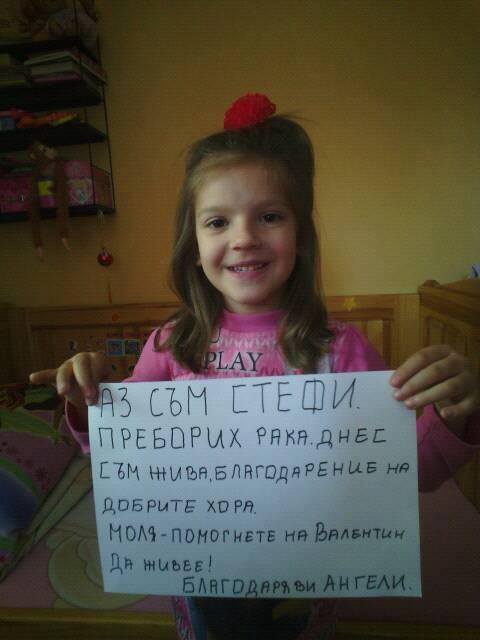 PLAY
АЗ СЪМ СТЕФИ.
ПРЕБОРИХ РАКА. ДНЕС
СЪМ ЖИВА, БЛАГОДАРЕНИЕ НА
ДОБРИТЕ ХОРА.
МОЛЯ-ПОМОГНЕТЕ НА ВАЛЕНТИН
ДА ЖИВЕЕ!
БЛАГОДАРЯ ВИ АНГЕЛИ.